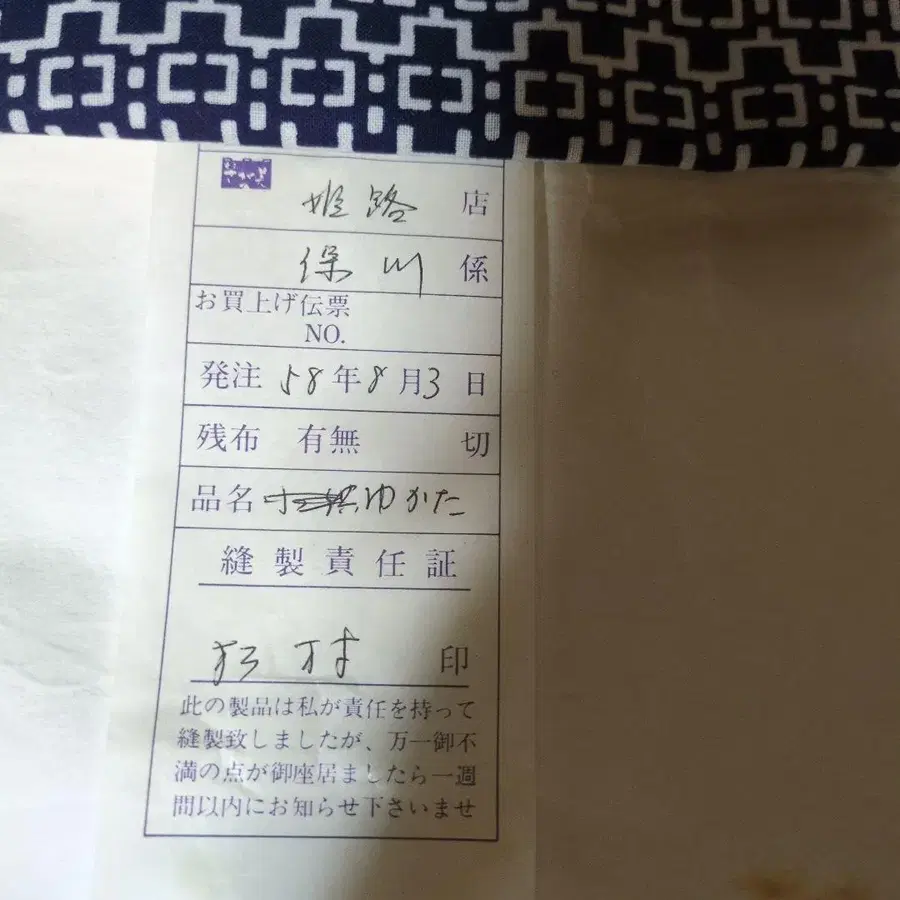 姫路 店
保川 係
お買上げ伝票
NO.
発注 58年8月3日
残布 有無 切
品名 ゆかた
縫製責任証
印
此の製品は私が責任を持って
縫製致しましたが、万一御不
満の点が御座居ましたら一週
間以内にお知らせ下さいませ